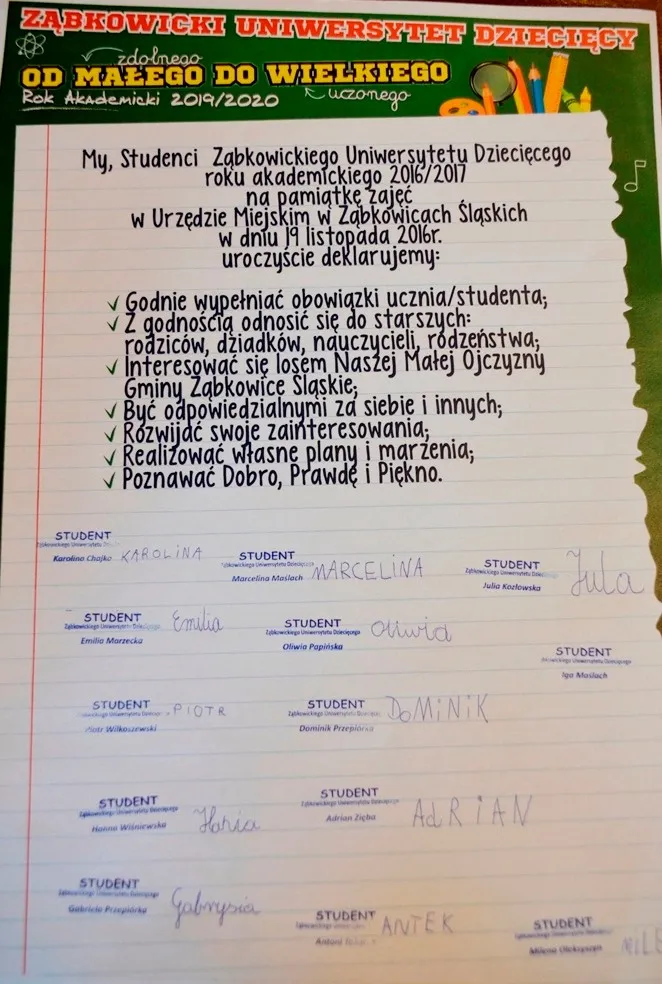 ZĄBKOWICKI UNIWERSYTET DZIECIĘCY
zdolnego
OD MAŁEGO DO WIELKIEGO
uczonego
Rok Akademicki 2019/2020
My, Studenci Ząbkowickiego Uniwersytetu Dziecięcego
roku akademickiego 2016/2017
na pamiątkę zajęć
w Urzędzie Miejskim w Ząbkowicach Śląskich
w dniu 19 listopada 2016r.
uroczyście deklarujemy:
✓ Godnie wypełniać obowiązki ucznia/studenta;
✓ Z godnością odnosić się do starszych:
rodziców, dziadków, nauczycieli, rodzeństwa;
✓ Interesować się losem Naszej Małej Ojczyzny
Gminy Ząbkowice Śląskie;
✓ Być odpowiedzialnymi za siebie i innych;
✓ Rozwijać swoje zainteresowania;
✓ Realizować własne plany i marzenia;
✓ Poznawać Dobro, Prawdę i Piękno.
STUDENT
Ząbkowickiego Uniwersytetu
Karolina Chajka KAROLINA
STUDENT
Ząbkowickiego Uniwersytetu Dziecięcego
Marcelina Maślach MARCELINA
STUDENT
Ząbkowickiego Uniwersytetu
Julia Kozłowska Jula
STUDENT
Ząbkowickiego Uniwersytetu Dziecięcego
Emilia Marzecka Emilia
STUDENT
Ząbkowickiego Uniwersytetu Dziecięcego
Oliwia Papińska Oliwia
STUDENT
Ząbkowickiego Uniwersytetu Dziecięcego
Iga Maślach
STUDENT
Ząbkowickiego Uniwersytetu
Piotr Wilkoszewski PIOTR
STUDENT
Ząbkowickiego Uniwersytetu Dziecięcego
Dominik Przepiórka DOMINIK
STUDENT
Ząbkowickiego Uniwersytetu Dziecięcego
Hanna Wiśniewska Hania
STUDENT
Ząbkowickiego Uniwersytetu Dziecięcego
Adrian Zięba AdRIAN
STUDENT
Ząbkowickiego Uniwersytetu Dziecięcego
Gabriela Przepiórka Gabrysia
STUDENT
Antoni ANTEK
STUDENT
Ząbkowickiego Uniwersytetu Dziecięcego
Milena MILE